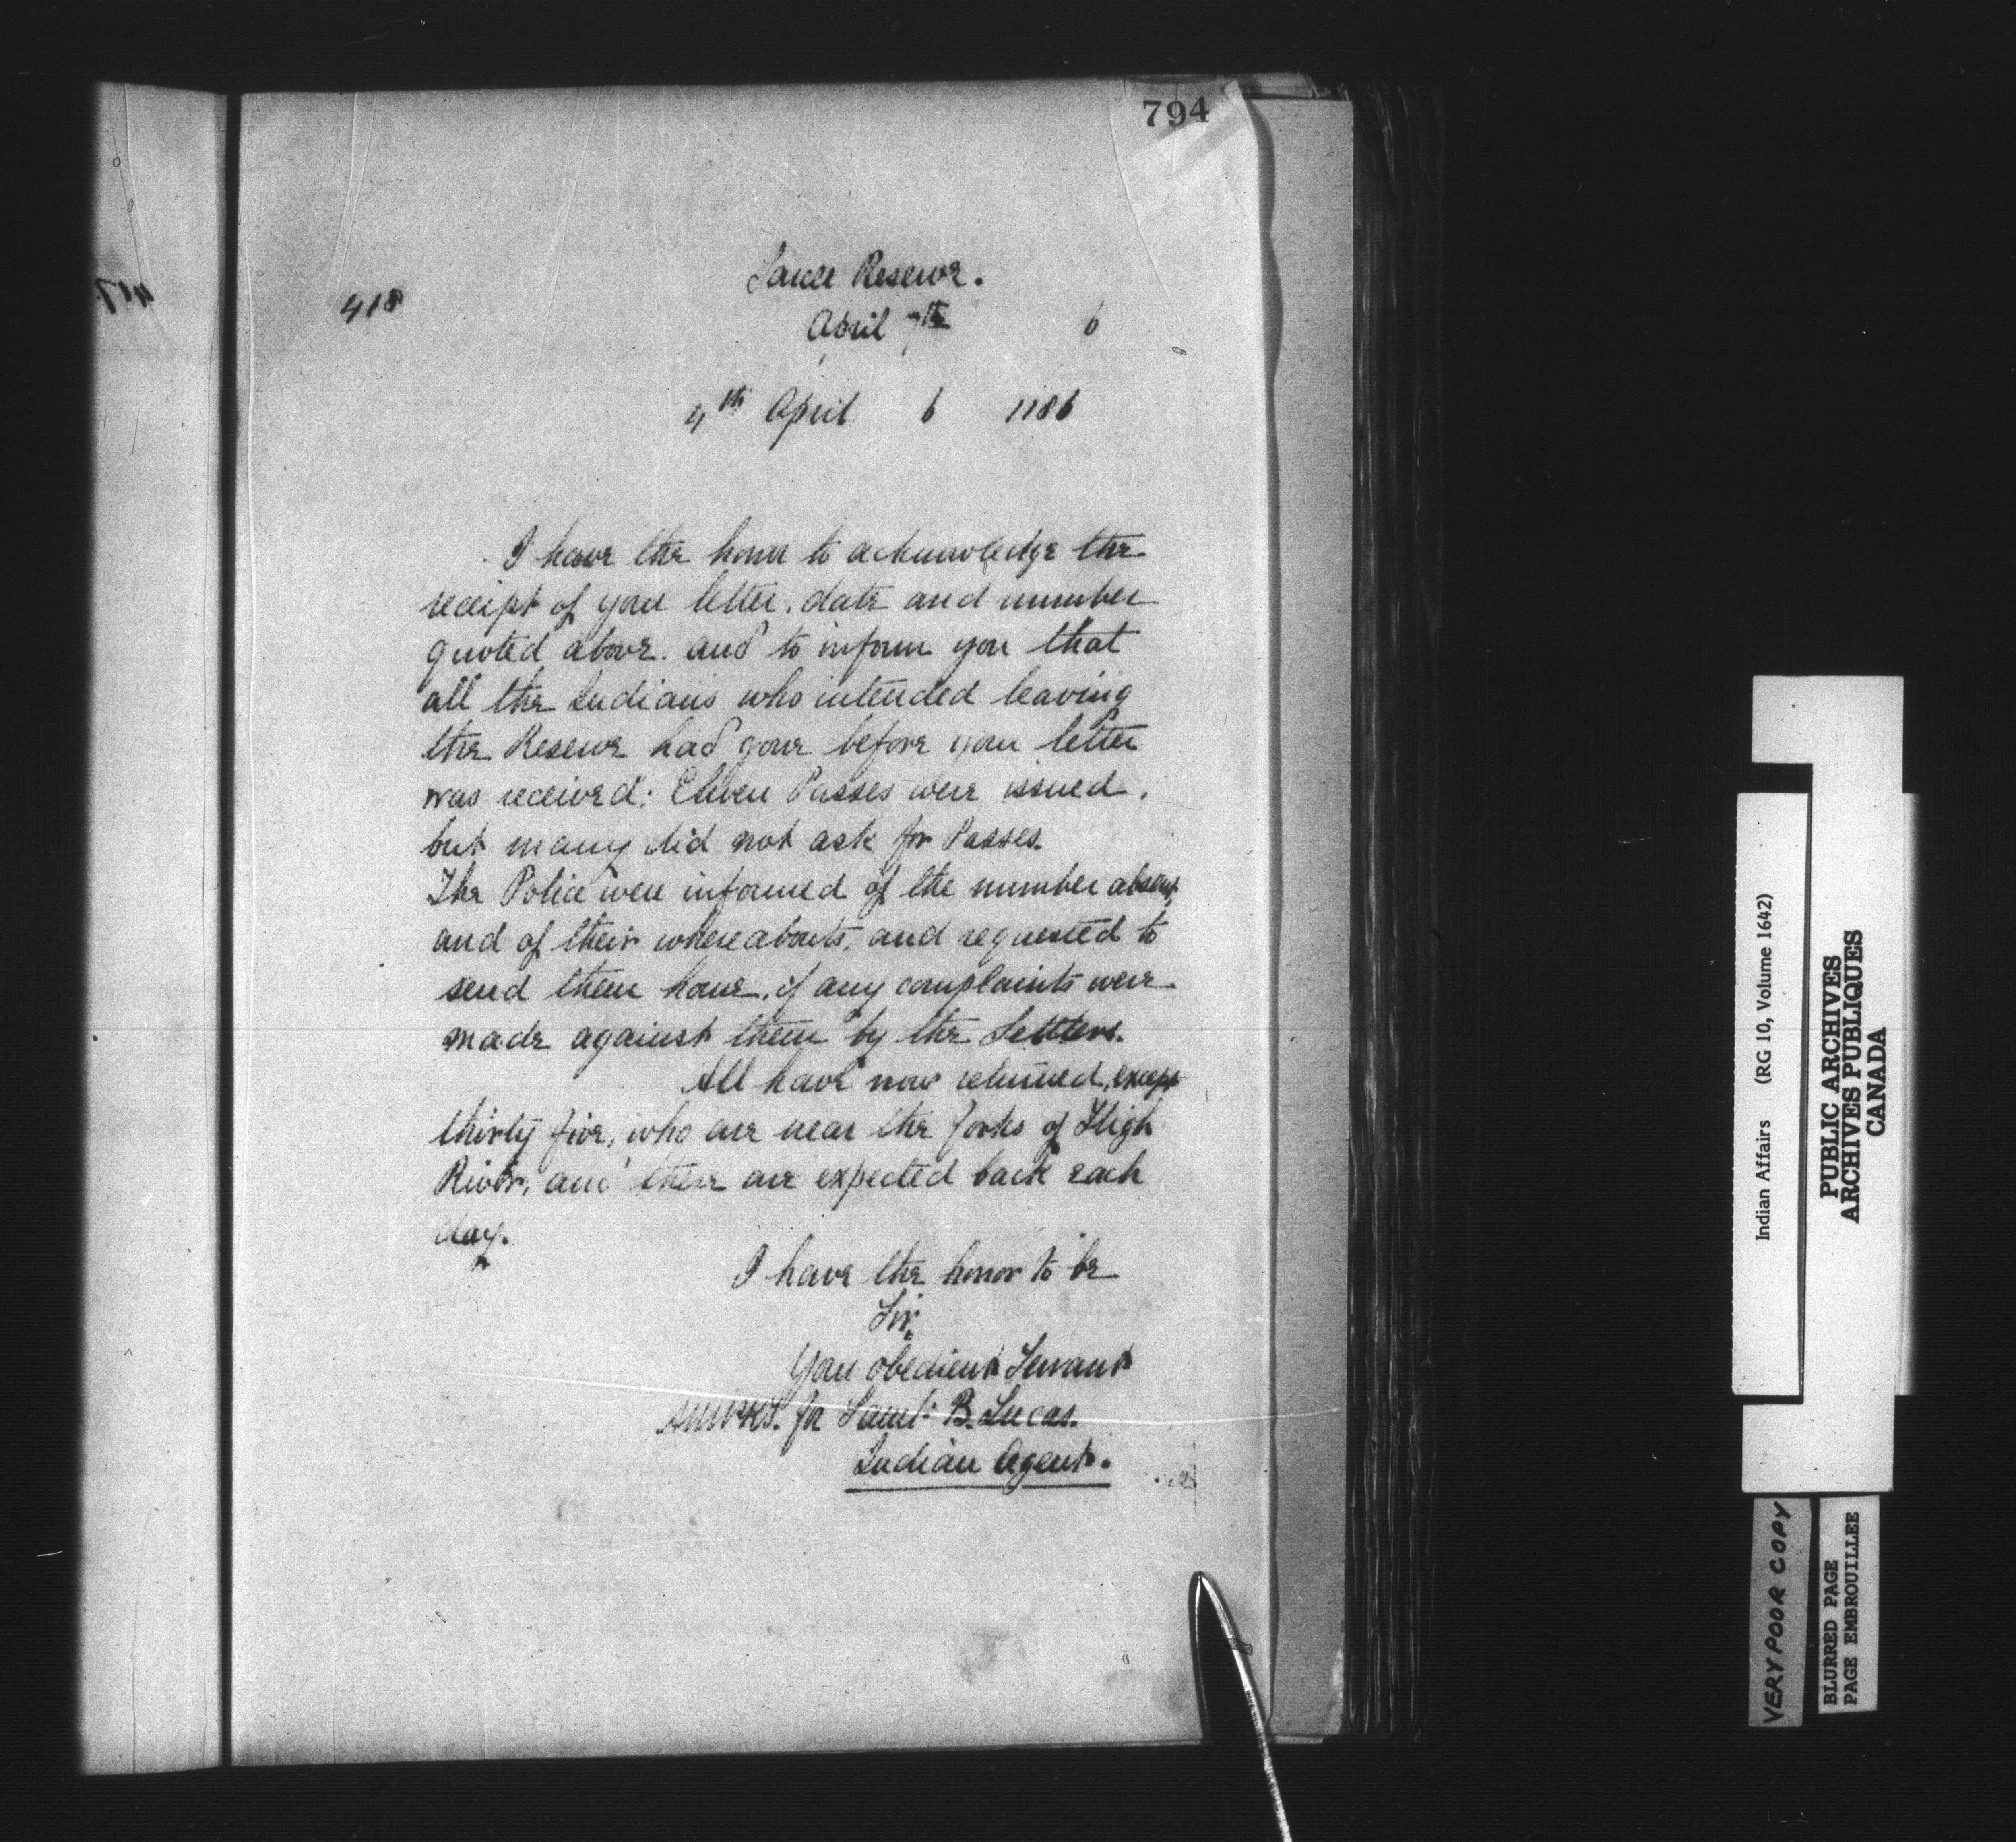 794
Sarcee Reserve.
418
April 7th 6
4th April 6 1186
I have the honor to acknowledge the
receipt of your letter, date and number
quoted above. and to inform you that
all the Indians who intended leaving
the Reserve had gone before your letter
was received: Eleven Passes were issued.
but many did not ask for Passes.
The Police were informed of the number absent,
and of their whereabouts, and requested to
send them home, if any complaints were
made against them by the Settlers.
All have now returned, except
thirty five, who are near the forks of High
River, and these are expected back each
day.
I have the honor to be
Sir,
Your obedient Servant
for Saml. B. Lucas.
Indian Agent.
417
Indian Affairs (RG 10, Volume 1642)
PUBLIC ARCHIVES
ARCHIVES PUBLIQUES
CANADA
VERY POOR COPY
BLURRED PAGE
PAGE EMBROUILLEE